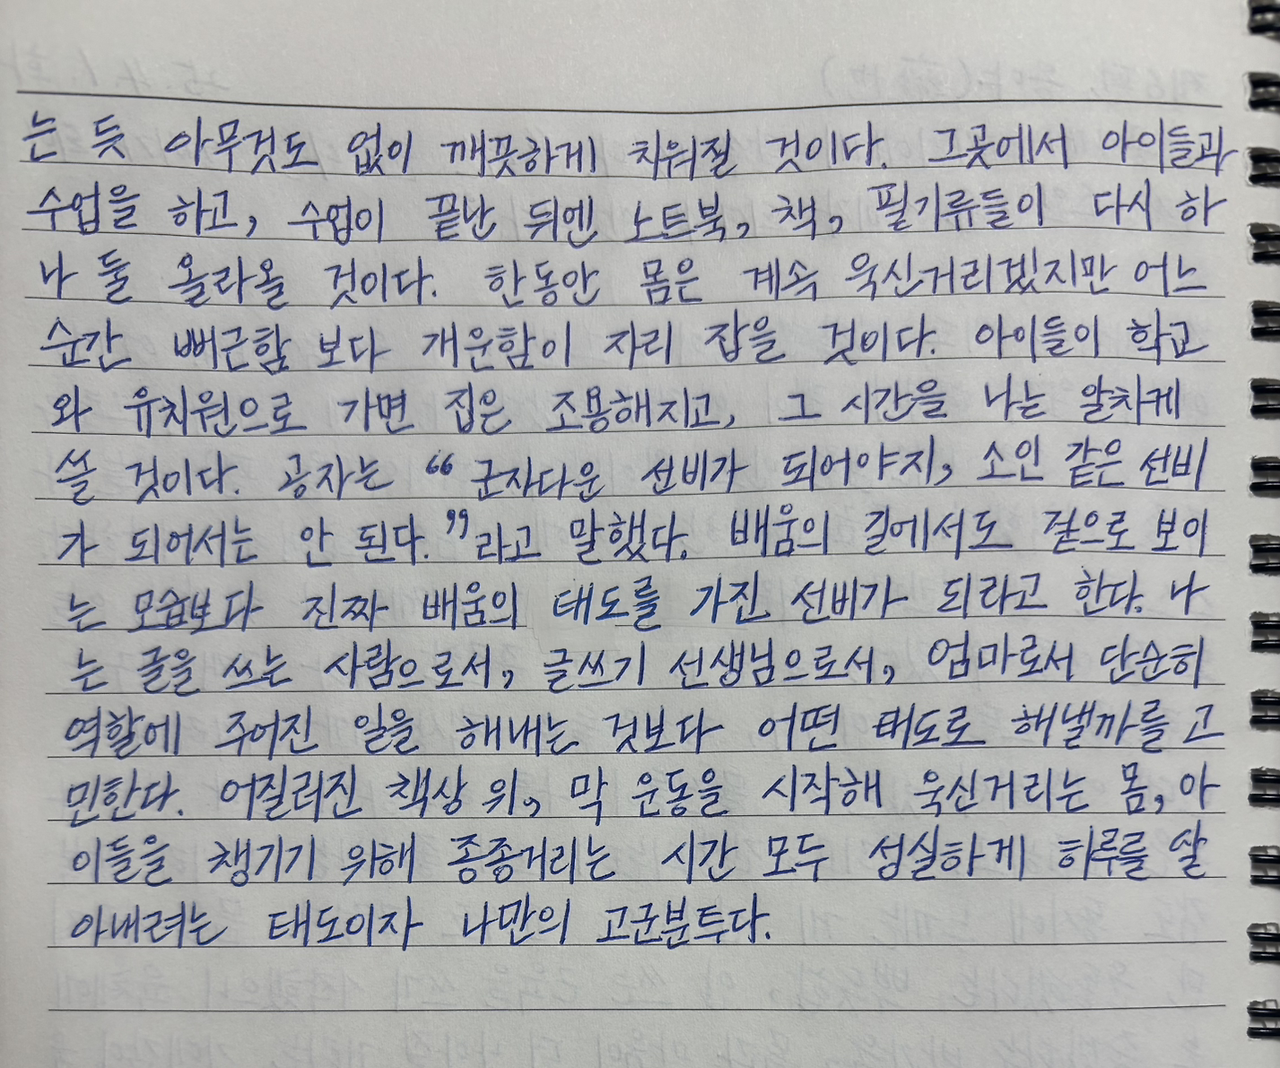 는 듯 아무것도 없이 깨끗하게 치워질 것이다. 그곳에서 아이들과
수업을 하고, 수업이 끝난 뒤엔 노트북, 책, 필기류들이 다시 하
나 둘 올라올 것이다. 한동안 몸은 계속 욱신거리겠지만 어느
순간 뻐근함 보다 개운함이 자리 잡을 것이다. 아이들이 학교
와 유치원으로 가면 집은 조용해지고, 그 시간을 나는 알차게
쓸 것이다. 공자는 “군자다운 선비가 되어야지, 소인 같은 선비
가 되어서는 안 된다.”라고 말했다. 배움의 길에서도 겉으로 보이
는 모습보다 진짜 배움의 태도를 가진 선비가 되라고 한다. 나
는 글을 쓰는 사람으로서, 글쓰기 선생님으로서, 엄마로서 단순히
역할에 주어진 일을 해내는 것보다 어떤 태도로 해낼까를 고
민한다. 어질러진 책상 위, 막 운동을 시작해 욱신거리는 몸, 아
이들을 챙기기 위해 종종거리는 시간 모두 성실하게 하루를 살
아내려는 태도이자 나만의 고군분투다.